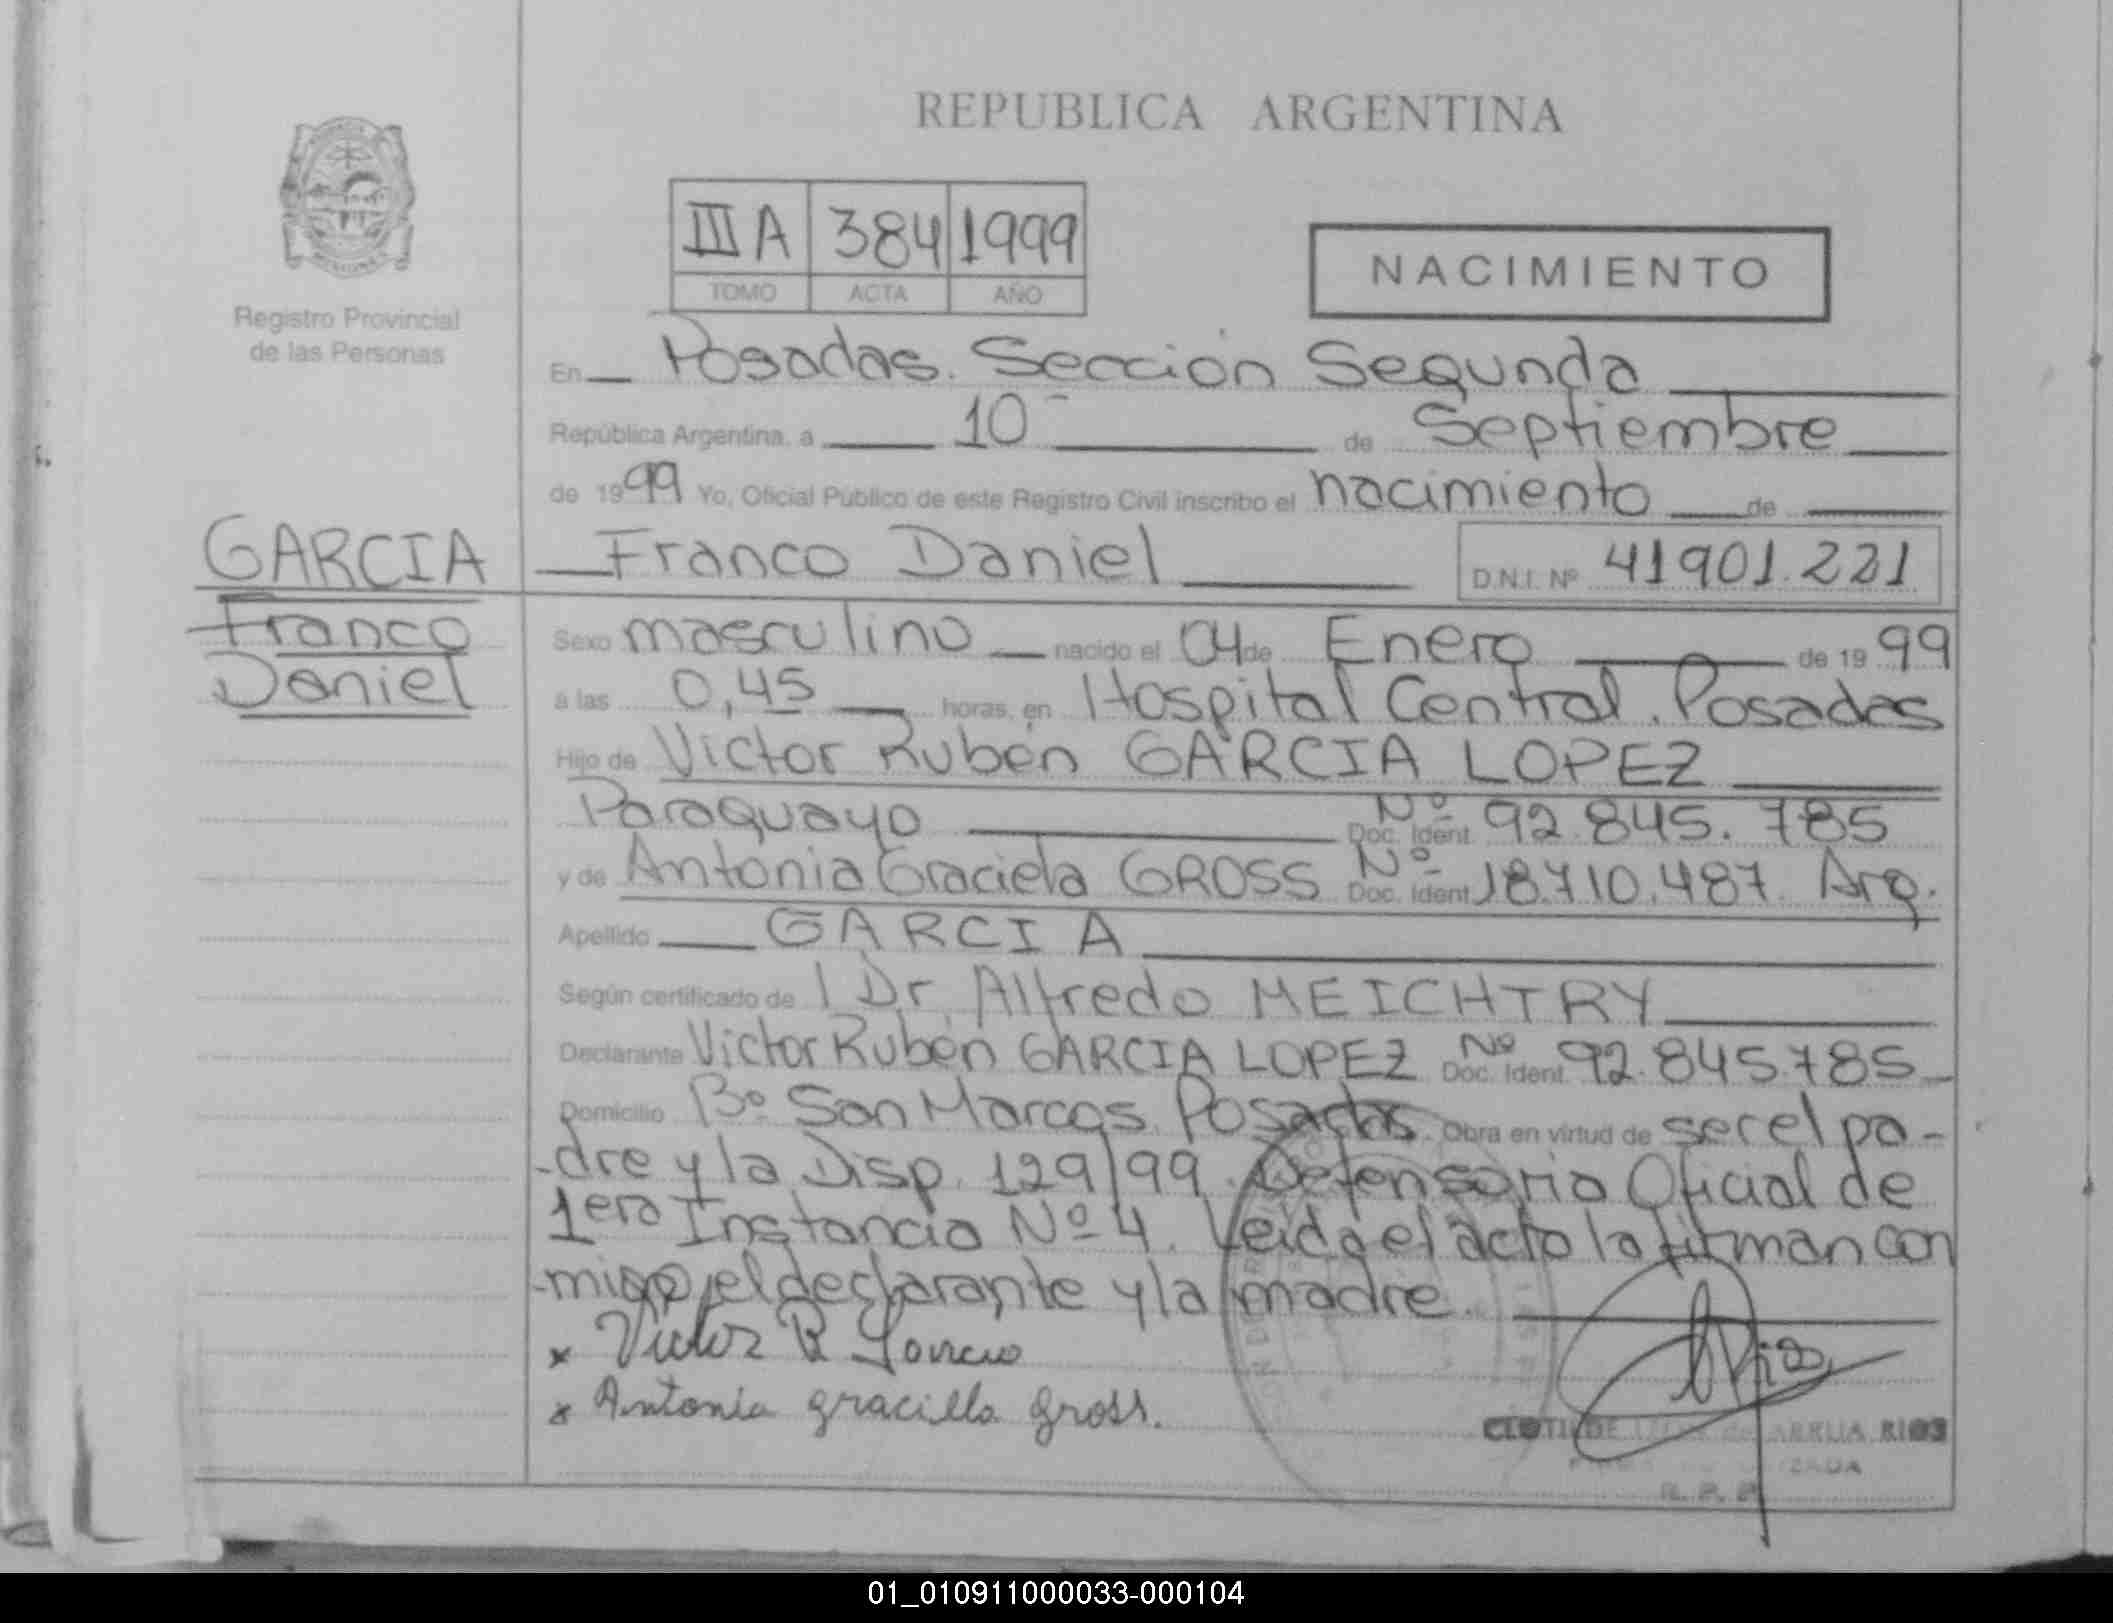 REPUBLICA ARGENTINA
IIIA 384 1999
TOMO ACTA AÑO
NACIMIENTO
Registro Provincial
de las Personas
En Posadas. Sección Segunda
República Argentina, a 10 de Septiembre
de 1999 Yo, Oficial Público de este Registro Civil inscribo el nacimiento de
GARCIA
Franco
Daniel
Franco Daniel D.N.I. Nº 41901.221
Sexo masculino nacido el 04 de Enero de 1999
a las 0,45 horas, en Hospital Central. Posadas
Hijo de Victor Rubén GARCIA LOPEZ
Paraguayo Nº Doc. Ident. 92.845.785
y de Antonia Graciela GROSS Nº Doc. Ident. 18.710.487. Arg.
Apellido GARCIA
Según certificado de l Dr. Alfredo MEICHTRY
Declarante Victor Rubén GARCIA LOPEZ Nº Doc. Ident. 92.845.785
Domicilio Bº San Marcos. Posadas. Obra en virtud de ser el pa-
-dre y la Disp. 129/99. Defensoria Oficial de
1era Instancia Nº 4. Leida el acta la firman con
-migo, el declarante y la madre.
x Victor R Garcia
x Antonia graciella gross.
CLOTILDE ARRUA RIOS
R. P. P.
01_010911000033-000104